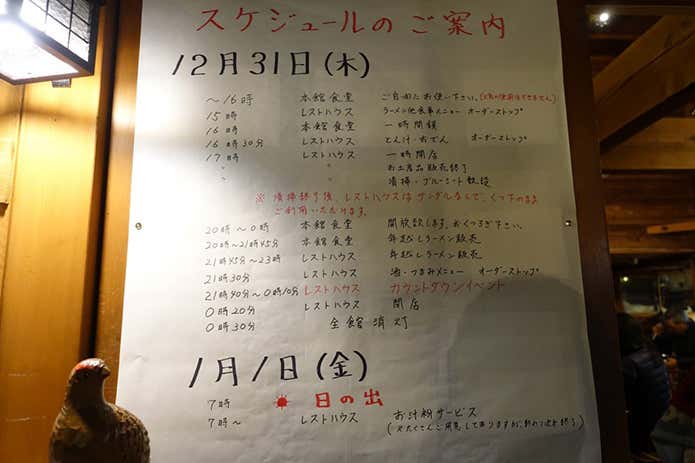 スケジュールのご案内
12月31日(木)
～16時 本館食堂 ご自由にお使い下さい。(火気の使用はできません)
15時 レストハウス ラーメン他食事メニュー オーダーストップ
16時 本館食堂 一時閉鎖
16時30分 レストハウス とん汁・おでん オーダーストップ
17時 レストハウス 一時閉店
〃 〃 お土産品販売終了
〃 〃 清掃・ブルーシート敷設
※ 清掃終了後、レストハウスはサンダルなしで、くつ下のまま
ご利用いただけます。
20時～0時 本館食堂 開放致します。おくつろぎ下さい。
20時～21時45分 本館食堂 年越しラーメン販売
21時45分～23時 レストハウス 年越しラーメン販売
21時30分 レストハウス 酒・つまみメニュー オーダーストップ
21時40分～0時10分 レストハウス カウントダウンイベント
0時20分 レストハウス 閉店
0時30分 全館消灯
1月1日(金)
7時 日の出
7時～ レストハウス お汁粉サービス
(たくさんご用意しておりますが、終了)